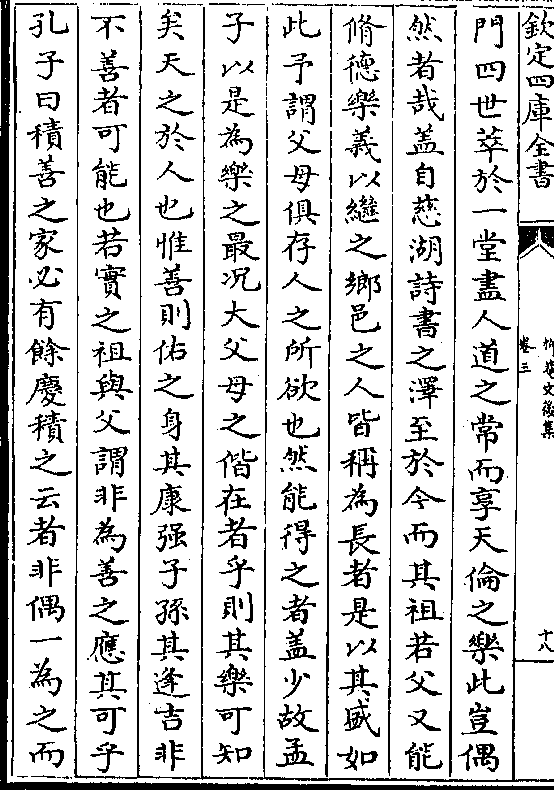 欽定四庫全書
卷三
十八
門四世萃於一堂盡人道之常而享天倫之樂此豈偶
然者哉盖自慈湖詩書之澤至於今而其祖若父又能
脩德樂義以繼之鄉邑之人皆稱為長者是以其盛如
此予謂父母俱存人之所欲也然能得之者盖少故孟
子以是為樂之最况大父母之偕在者乎則其樂可知
矣天之於人也惟善則佑之身其康强子孫其逢吉非
不善者可能也若實之祖與父謂非為善之應其可乎
孔子曰積善之家必有餘慶積之云者非偶一為之而